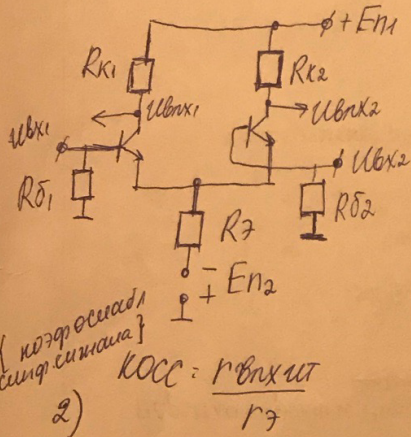 +Eп1
Rк1
Rк2
Uвых1
Uвых2
Uвх1
Uвх2
Rб1
Rб2
Rэ
- Eп2
+
{ коэф ослабл
синф сигнала}
КОСС = rвых ит
rэ
2)